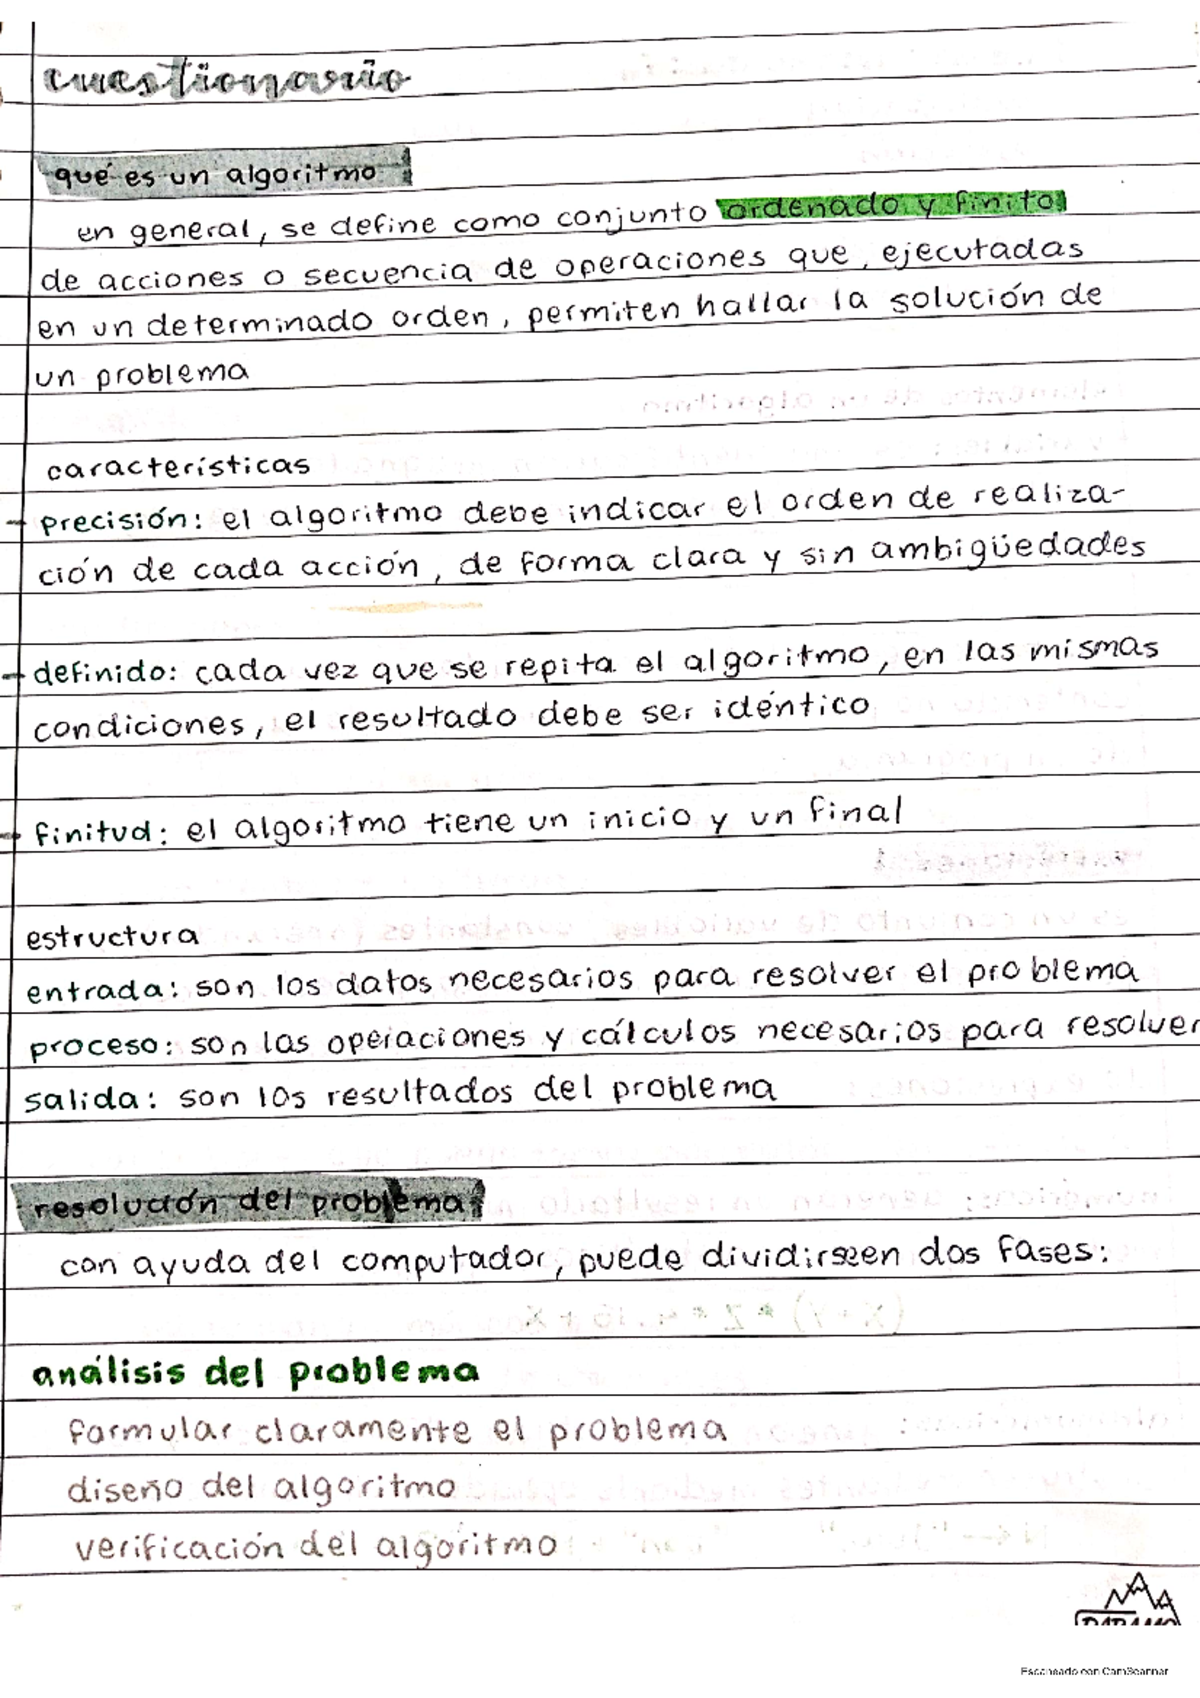 cuestionario
qué es un algoritmo
en general, se define como conjunto ordenado y finito
de acciones o secuencia de operaciones que, ejecutadas
en un determinado orden, permiten hallar la solución de
un problema
características
→ precisión: el algoritmo debe indicar el orden de realiza-
ción de cada acción, de forma clara y sin ambigüedades
→ definido: cada vez que se repita el algoritmo, en las mismas
condiciones, el resultado debe ser idéntico
→ finitud: el algoritmo tiene un inicio y un final
estructura
entrada: son los datos necesarios para resolver el problema
proceso: son las operaciones y cálculos necesarios para resolver
salida: son los resultados del problema
resolución del problema
con ayuda del computador, puede dividirse en dos fases:
análisis del problema
formular claramente el problema
diseño del algoritmo
verificación del algoritmo
Escaneado con CamScanner